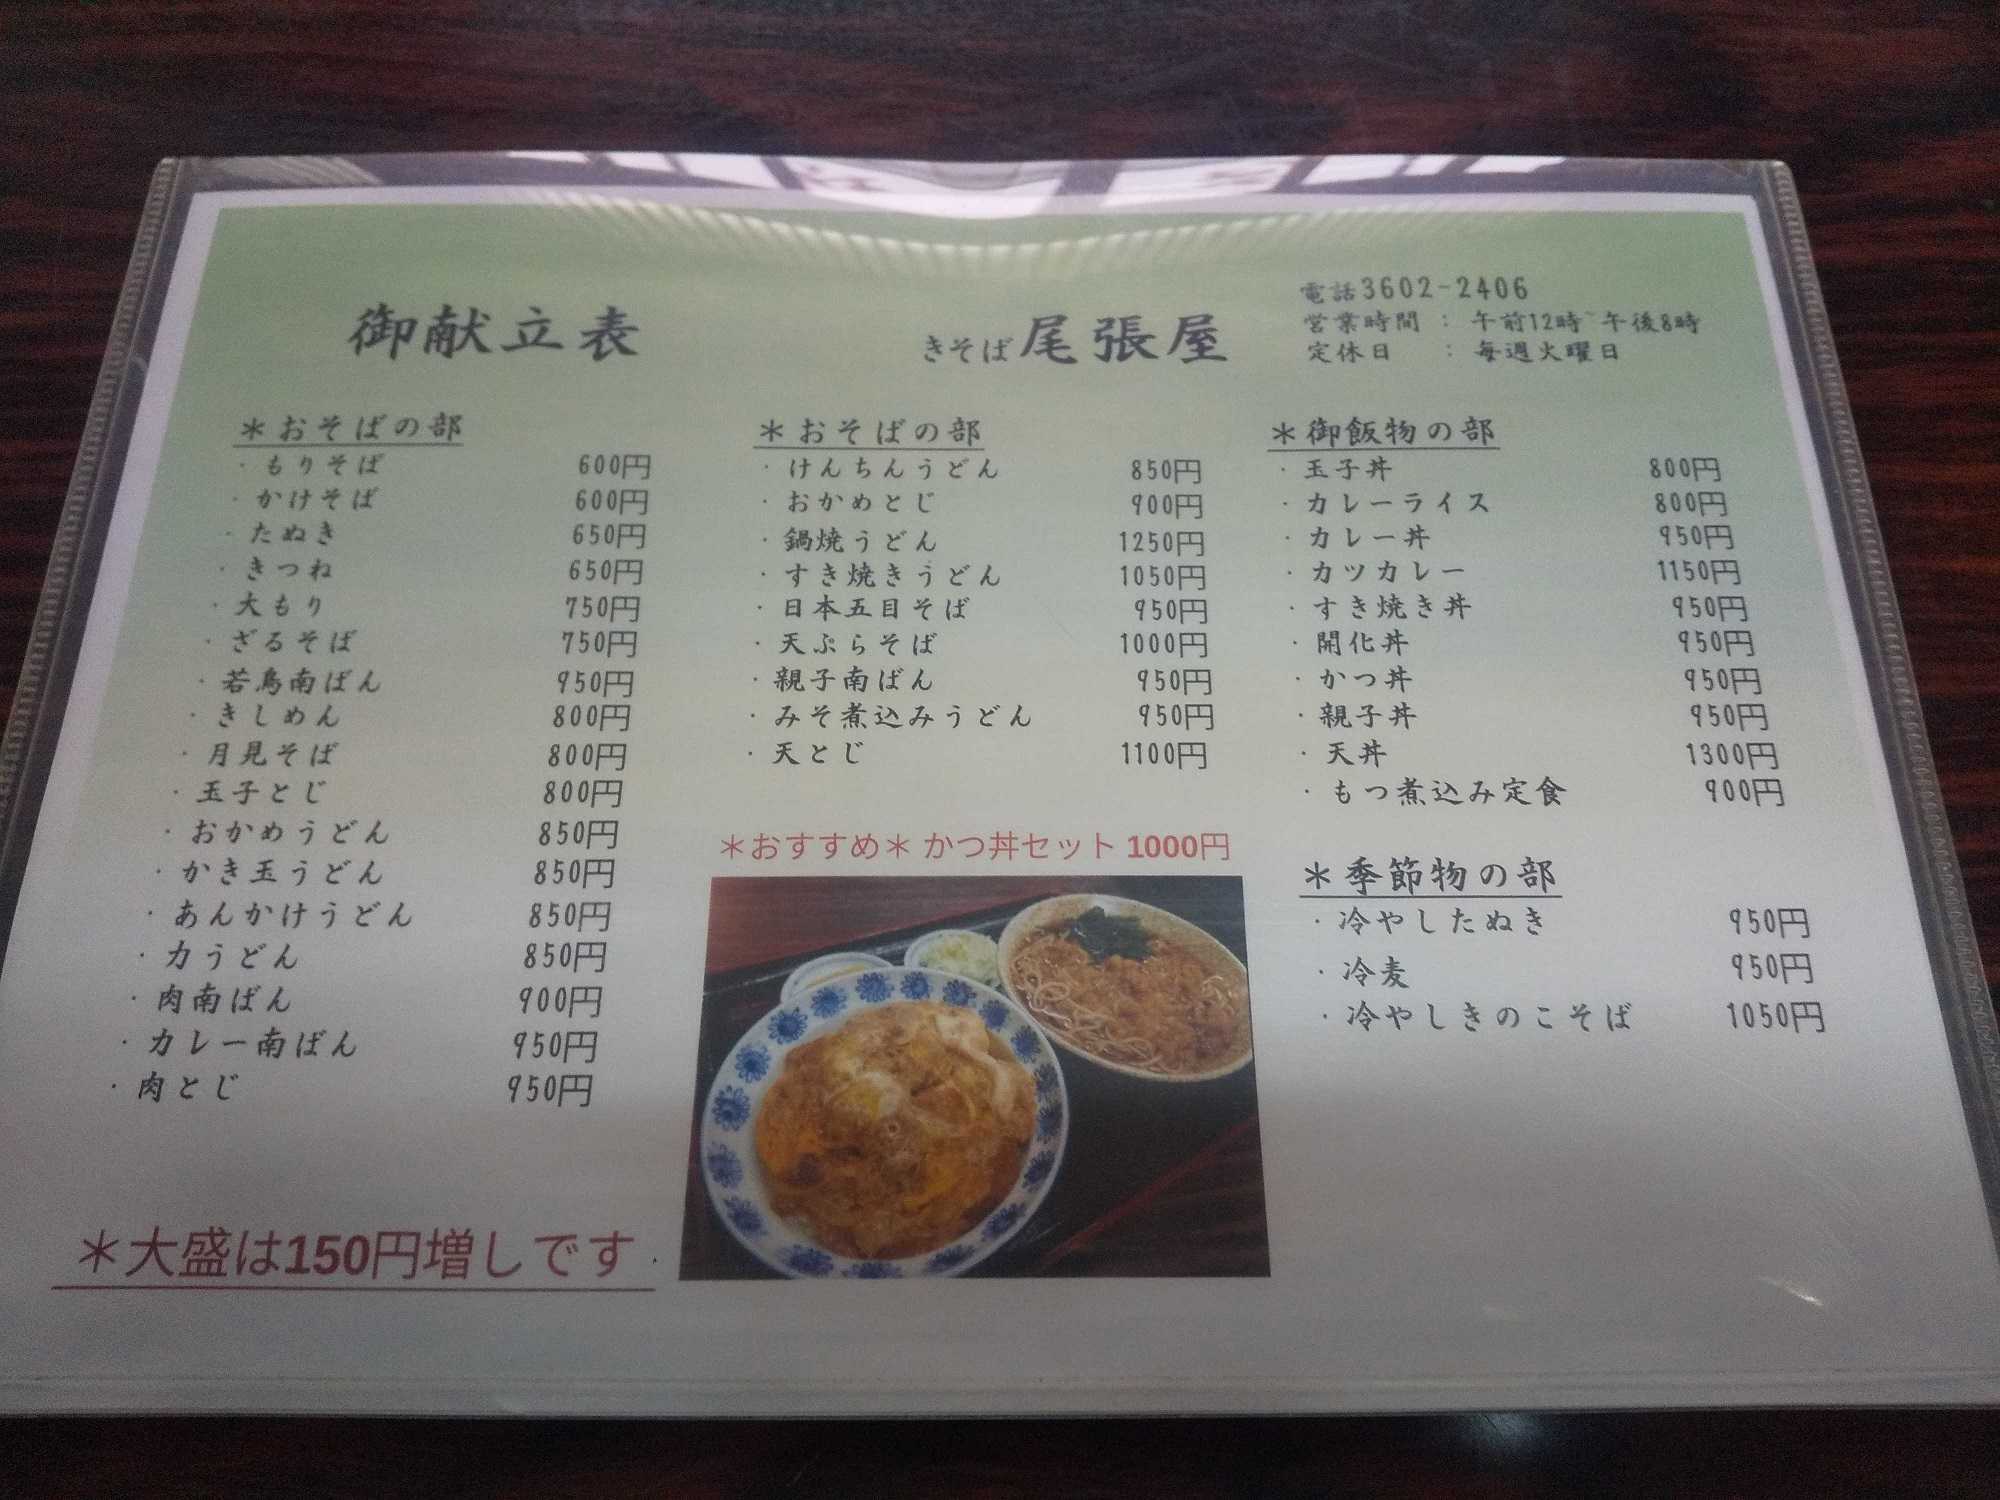 御献立表
きそば 尾張屋
電話3602-2406
営業時間 : 午前12時~午後8時
定休日 : 毎週火曜日
＊おそばの部
・もりそば 600円
・かけそば 600円
・たぬき 650円
・きつね 650円
・大もり 750円
・ざるそば 750円
・若鳥南ばん 950円
・きしめん 800円
・月見そば 800円
・玉子とじ 800円
・おかめうどん 850円
・かき玉うどん 850円
・あんかけうどん 850円
・力うどん 850円
・肉南ばん 900円
・カレー南ばん 950円
・肉とじ 950円
＊大盛は150円増しです
＊おそばの部
・けんちんうどん 850円
・おかめとじ 900円
・鍋焼うどん 1250円
・すき焼きうどん 1050円
・日本五目そば 950円
・天ぷらそば 1000円
・親子南ばん 950円
・みそ煮込みうどん 950円
・天とじ 1100円
＊おすすめ＊ かつ丼セット 1000円
＊御飯物の部
・玉子丼 800円
・カレーライス 800円
・カレー丼 950円
・カツカレー 1150円
・すき焼き丼 950円
・開化丼 950円
・かつ丼 950円
・親子丼 950円
・天丼 1300円
・もつ煮込み定食 900円
＊季節物の部
・冷やしたぬき 950円
・冷麦 950円
・冷やしきのこそば 1050円